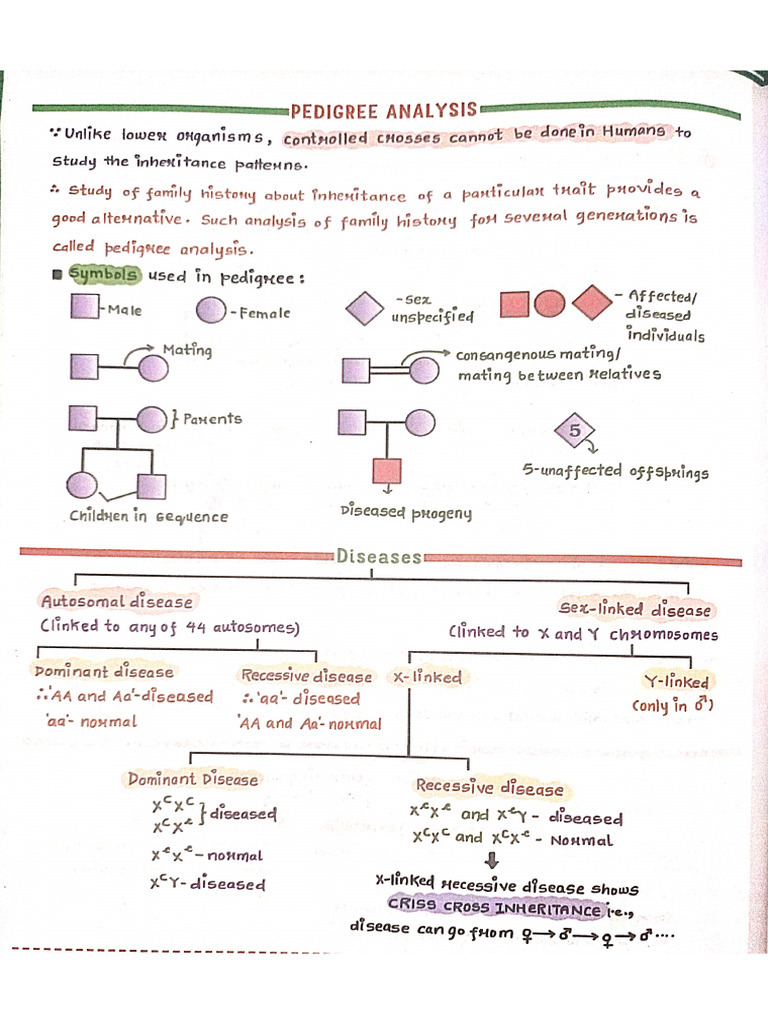 PEDIGREE ANALYSIS
∵ Unlike lower organisms, controlled crosses cannot be done in Humans to
study the inheritance patterns.
∴ Study of family history about inheritance of a particular trait provides a
good alternative. Such analysis of family history for several generations is
called pedigree analysis.
■ Symbols used in pedigree:
-Male
-Female
-Sex
unspecified
- Affected/
diseased
individuals
Mating
consangenous mating/
mating between relatives
} Parents
Children in sequence
Diseased progeny
5
5-unaffected offsprings
Diseases
Autosomal disease
(linked to any of 44 autosomes)
Sex-linked disease
(linked to X and Y chromosomes
Dominant disease
∴'AA and Aa'-diseased
'aa'- normal
Recessive disease
∴'aa'- diseased
'AA and Aa'-normal
X-linked
Y-linked
(only in ♂)
Dominant Disease
XᶜXᶜ
XᶜXᶜ
} diseased
XᶜXᶜ-normal
XᶜY-diseased
Recessive disease
XᶜXᶜ and XᶜY- diseased
XᶜXᶜ and XᶜXᶜ - Normal
X-linked recessive disease shows
CRISS CROSS INHERITANCE i.e.,
disease can go from ♀→♂→♀→♂....